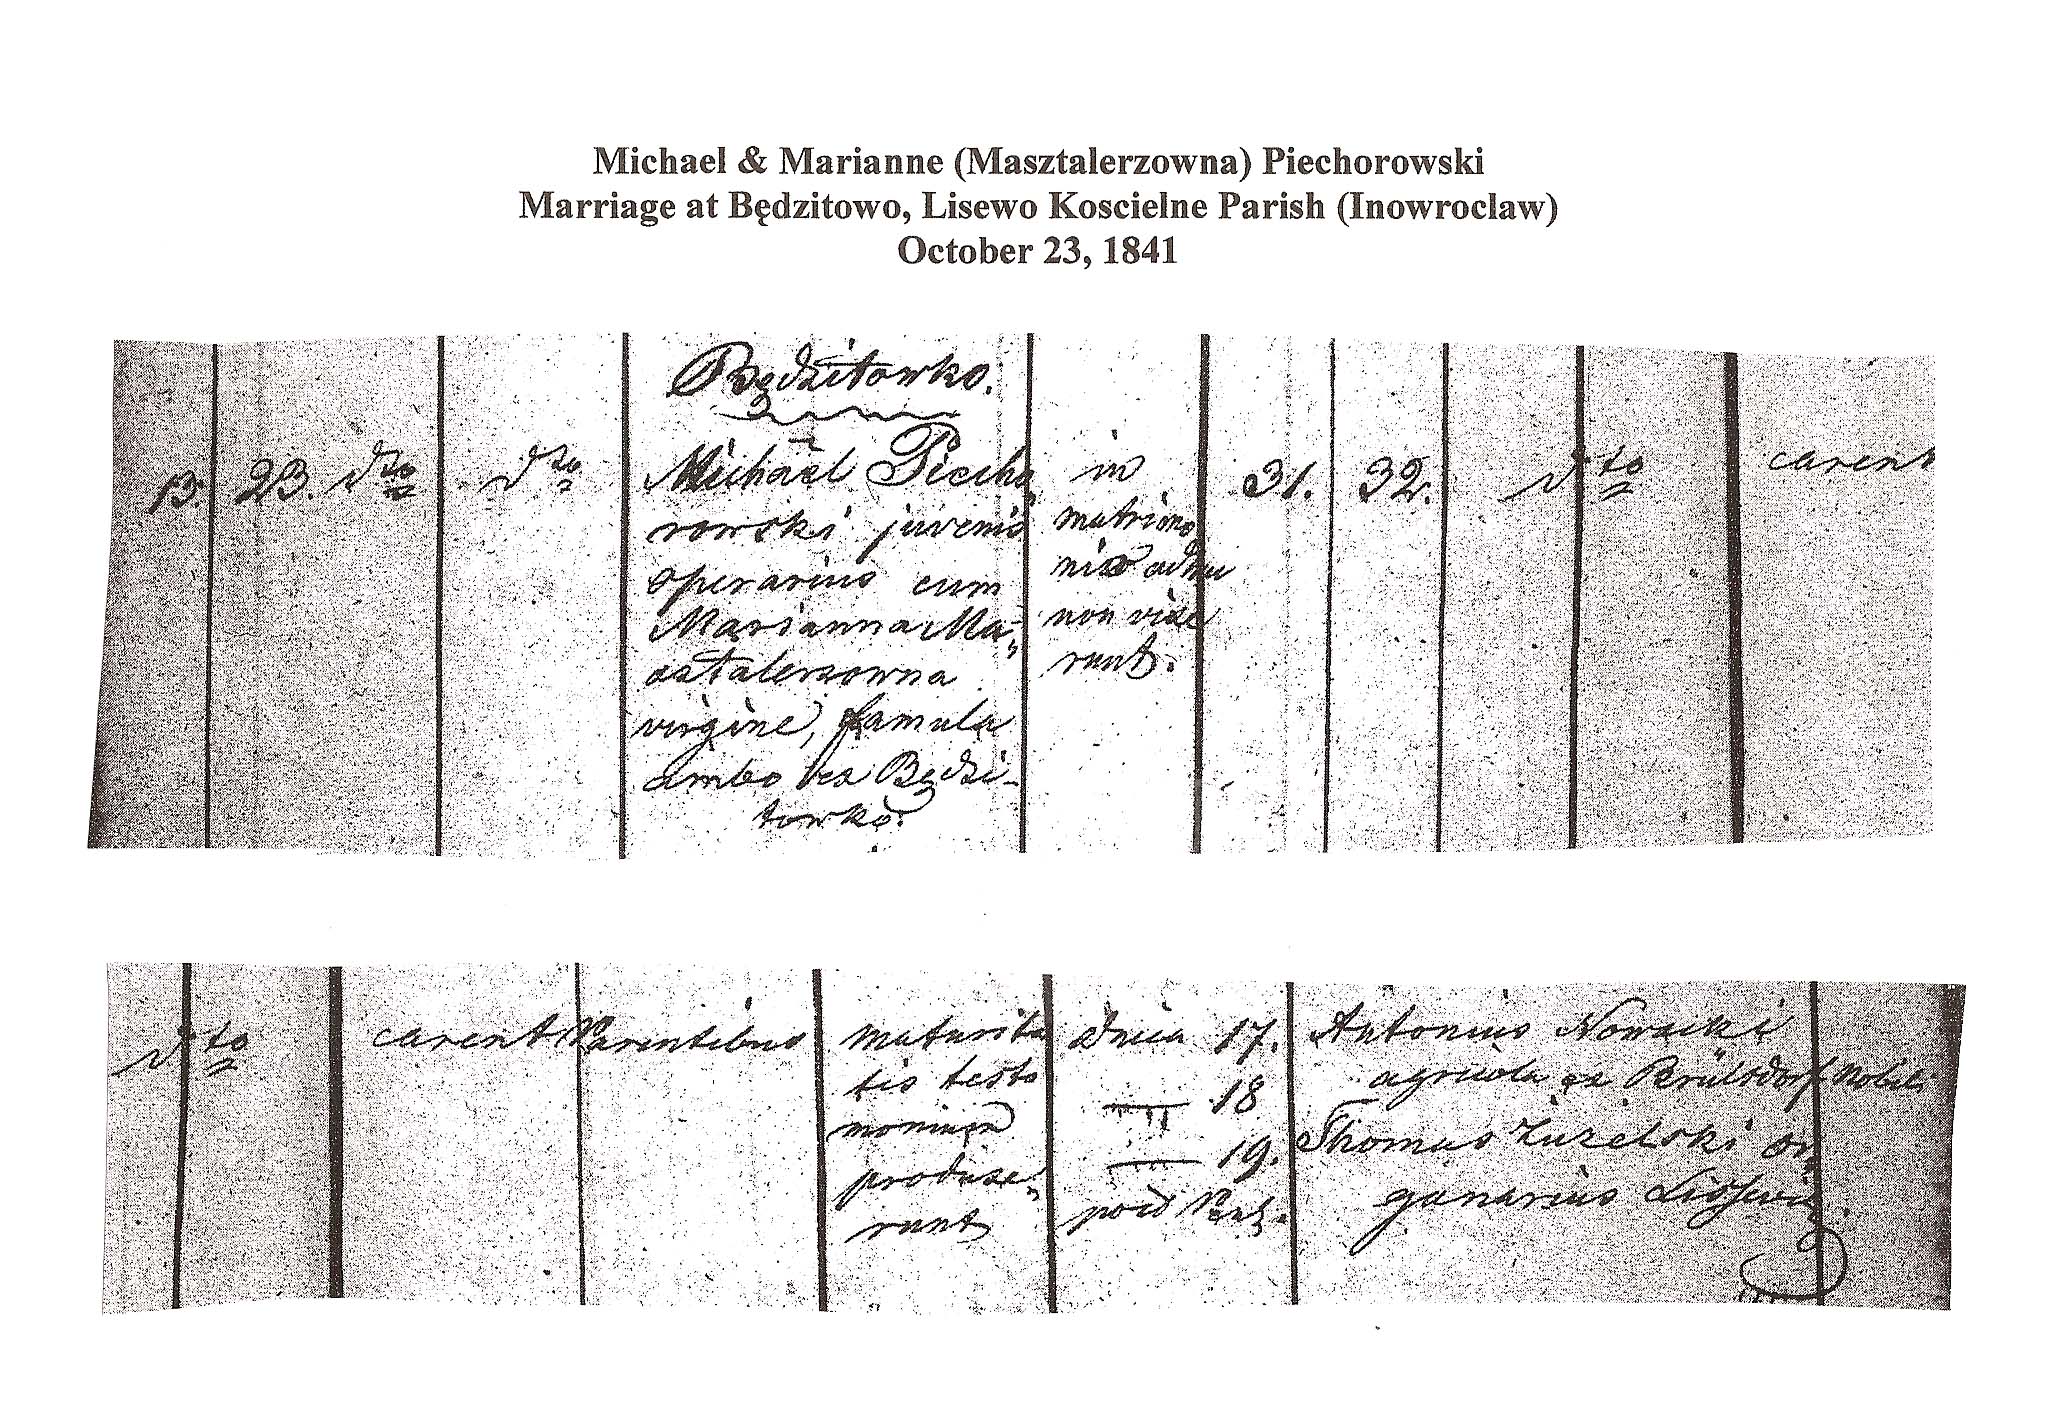 Michael & Marianne (Masztalerzowna) Piechorowski
Marriage at Będzitowo, Lisewo Koscielne Parish (Inowroclaw)
October 23, 1841
Będzitowko.
13. 23. dto dto Michael Piecho
rowski juvenis
operarius cum
Marianna Ma-
sztalerzowna
virgine, famula
ambo ex Będzi-
towko.
in
matrimo
nio
non vixe
runt.
31. 32. dto carent
dto carent Parentibus
maturita
tis testi
monium
produxe-
runt
Dnica 17.
18
19.
post
Antonius Nowacki
agricola ex Brülsdorf
Thomas Zuzelski or-
ganarius